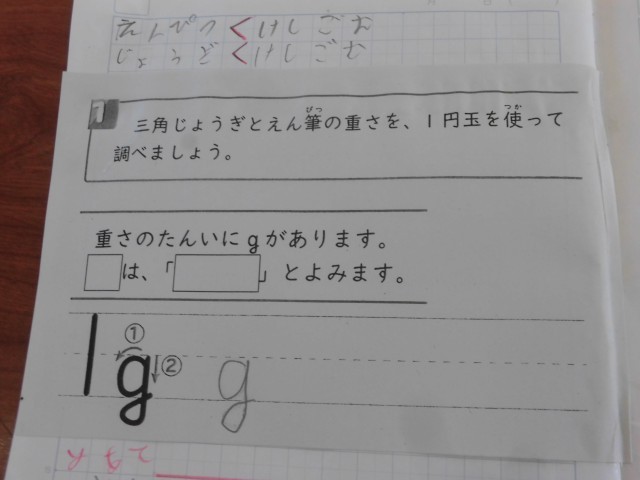 えんぴつ<けしごむ
じょうぎ<けしごむ
1
三角じょうぎとえん筆の重さを、1円玉を使って
調べましょう。
重さのたんいにgがあります。
□は、「□」とよみます。
1g ① ② g